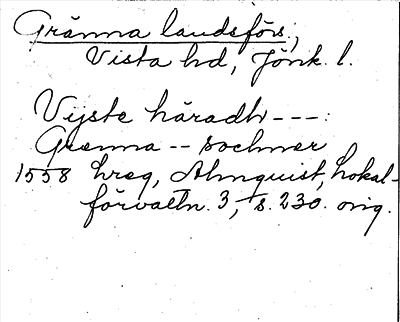 Gränna landsförs.,
Vista hd, Jönk. l.
Vijste häradh ---:
Grenna -- sochner
1558 hreg, Almquist, Lokal-
förvaltn. 3, s. 230. orig.